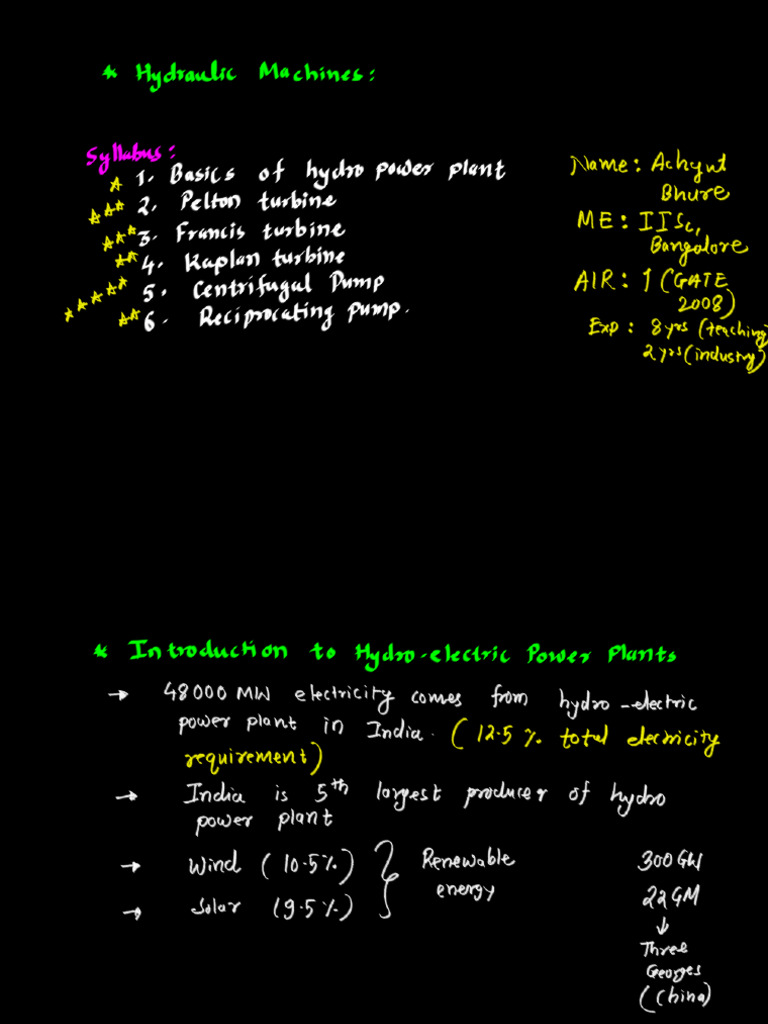 * Hydraulic Machines:
Syllabus:
1. Basics of hydro power plant
2. Pelton turbine
3. Francis turbine
4. Kaplan turbine
5. Centrifugal Pump
6. Reciprocating pump.
Name: Achyut
Bhure
ME: IISc,
Bangalore
AIR: 1 (GATE
2008)
Exp: 8 yrs (teaching)
2 yrs (industry)
* Introduction to Hydro-electric Power Plants
→ 48000 MW electricity comes from hydro-electric
power plant in India. (12.5 % total electricity
requirement)
→ India is 5th largest producer of hydro
power plant
→ Wind (10.5%)
→ Solar (9.5%)
Renewable
energy
300 GW
22 GM
↓
Three
Georges
(China)